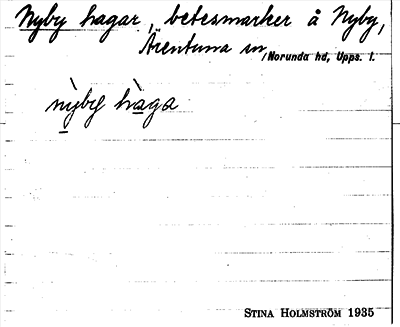 Nyby hagar, betesmarker å Nyby,
Ärentuna sn
/Norunda hd, Upps. l.
nỳby hàga
STINA HOLMSTRÖM 1935